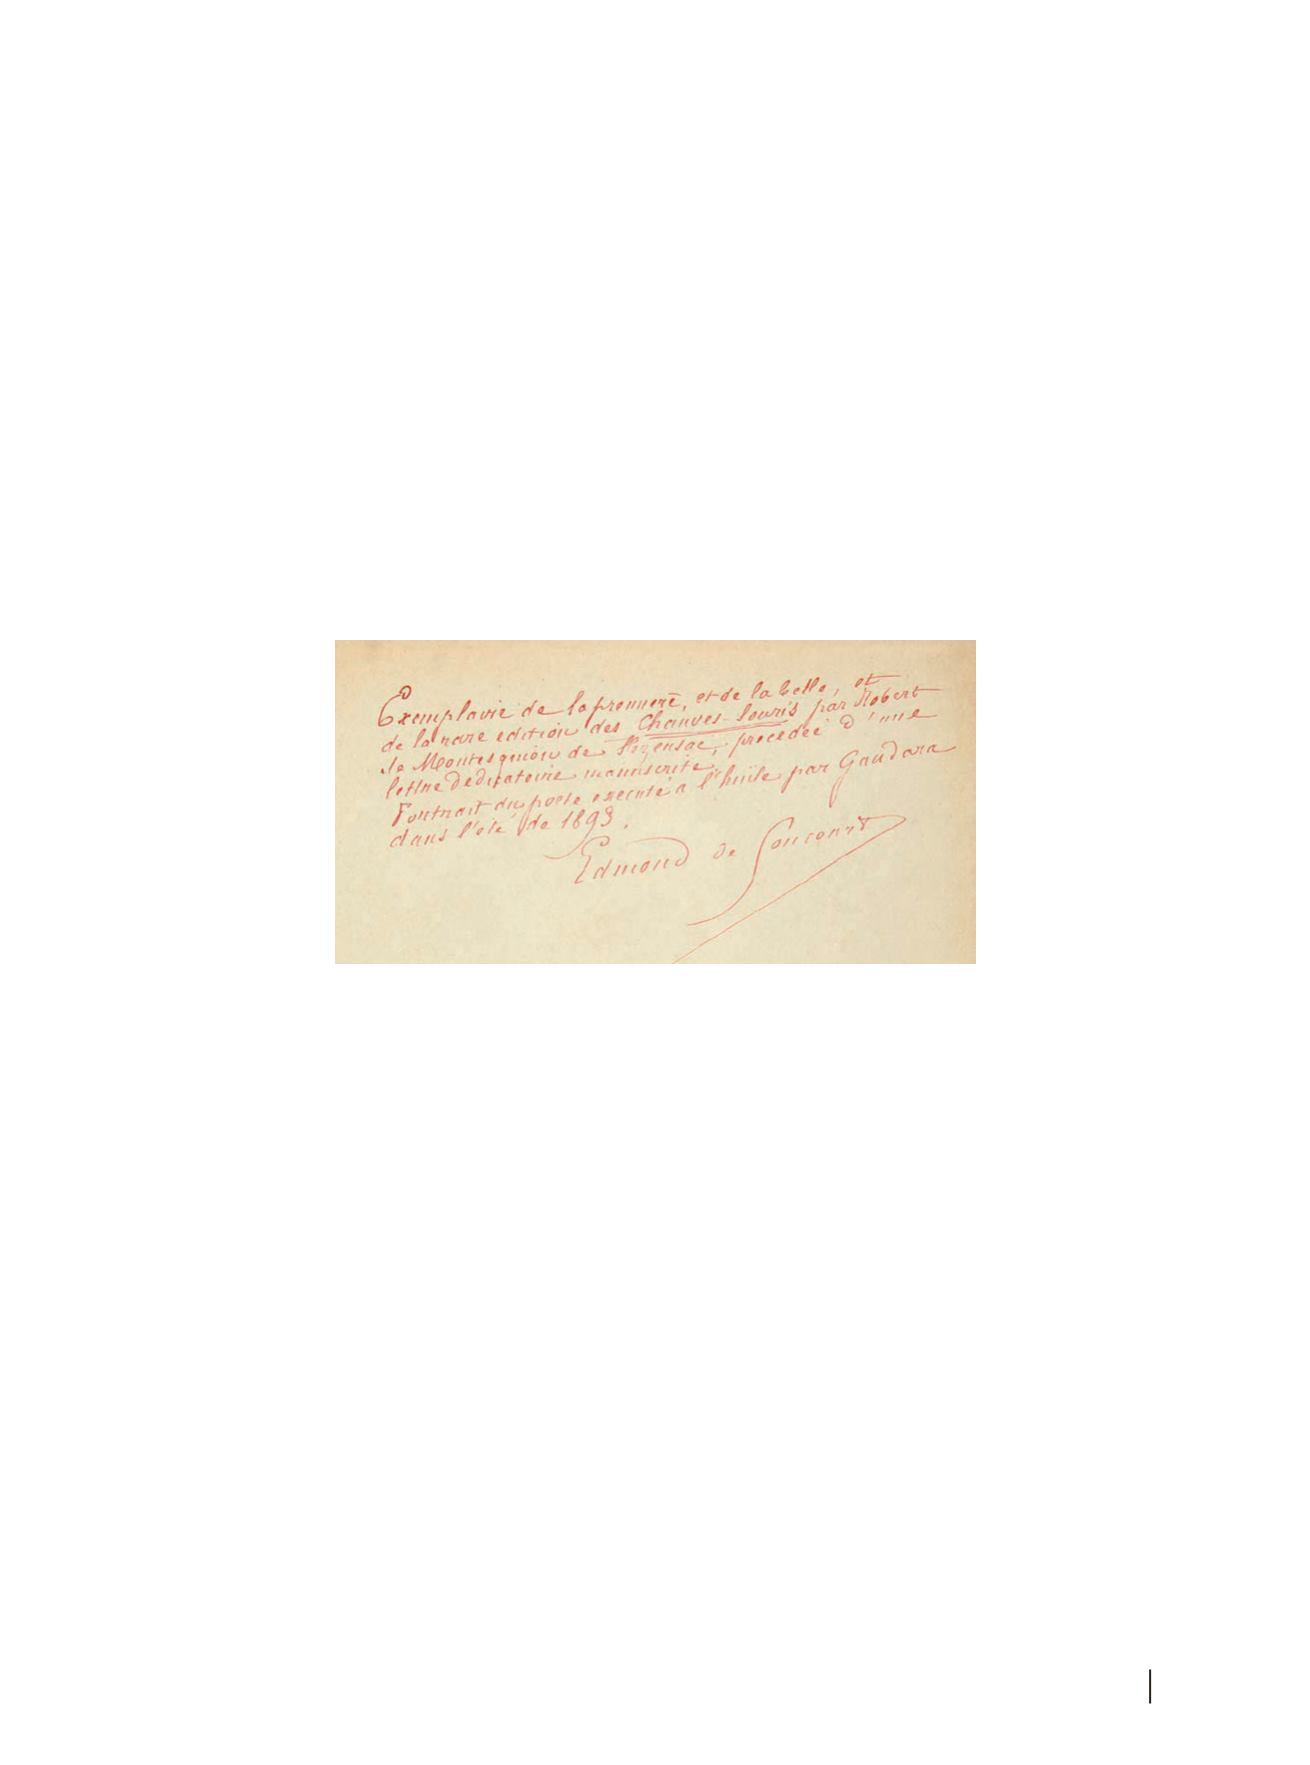 Exemplaire de la première, et de la belle, et
de la rare edition des Chauves-Souris par Robert
de Montesquiou de Fezensac, précédée d'une
lettre dedicatoire manuscrite.
Portrait du poete executé a l'huile par Gandara
dans l'eté de 1893.
Edmond de Goncourt